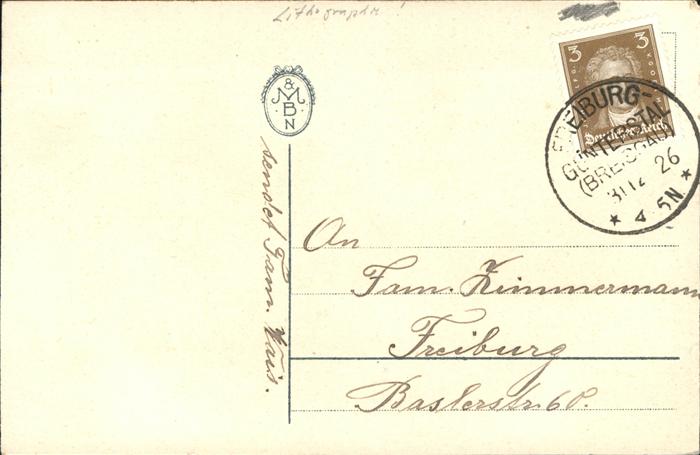 Lithographie!
3 3
Deutsches Reich
FREIBURG-
GÜNTERSTAL
(BREISGAU)
31 12 26
* 4-5N *
M & B N
sendet Fam. Wais.
An
Fam. Zimmermann
Freiburg
Baslerstr. 60.